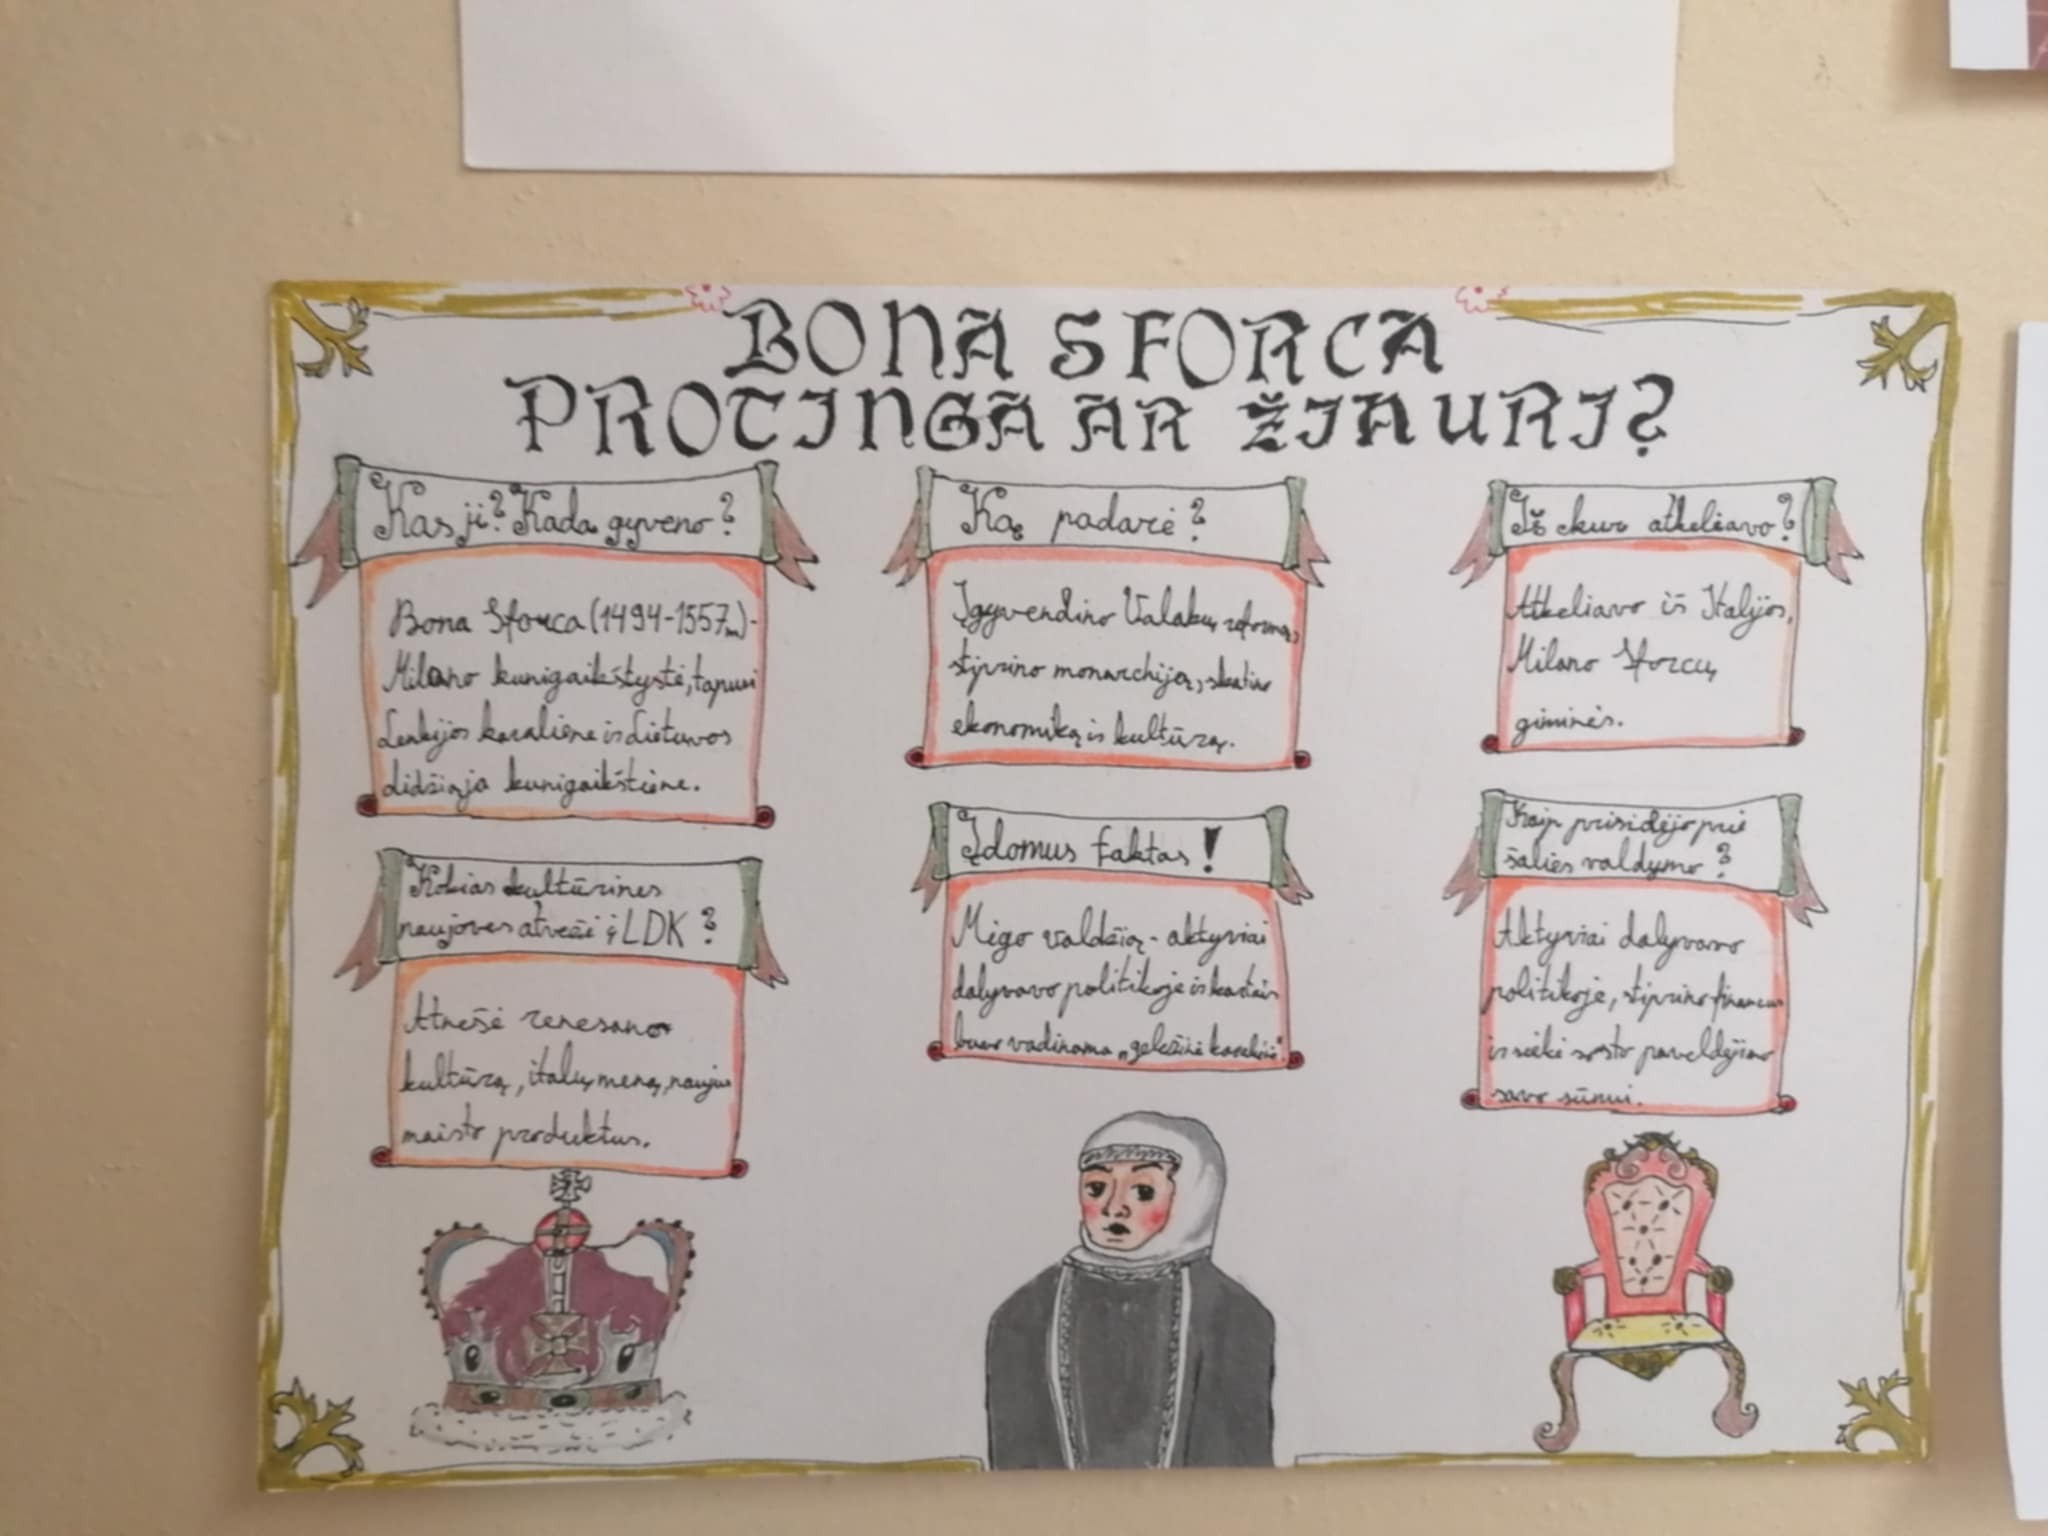 BONA SFORCA
PROTINGA AR ŽIAURI?
Kas ji? Kada gyveno?
Bona Sforca (1494-1557m)-
Milano kunigaikštystė, tapusi
Lenkijos karaliene ir Lietuvos
Didžiąja kunigaikštiene.
Ką padarė?
Įgyvendino Valakų reformą,
stiprino monarchiją, skatino
ekonomiką ir kultūrą.
Iš kur atkeliavo?
Atkeliavo iš Italijos,
Milano Sforcų
giminės.
Kokias kultūrines
naujoves atvežė į LDK?
Atnešė renesanso
kultūrą, italų meną, naujus
maisto produktus.
Įdomus faktas!
Mėgo valdžią - aktyviai
dalyvavo politikoje ir kartais
buvo vadinama „geležinė karalienė"
Kaip prisidėjo prie
šalies valdymo?
Aktyviai dalyvavo
politikoje, stiprino finansus
ir siekė sosto paveldėjimo
savo sūnui.